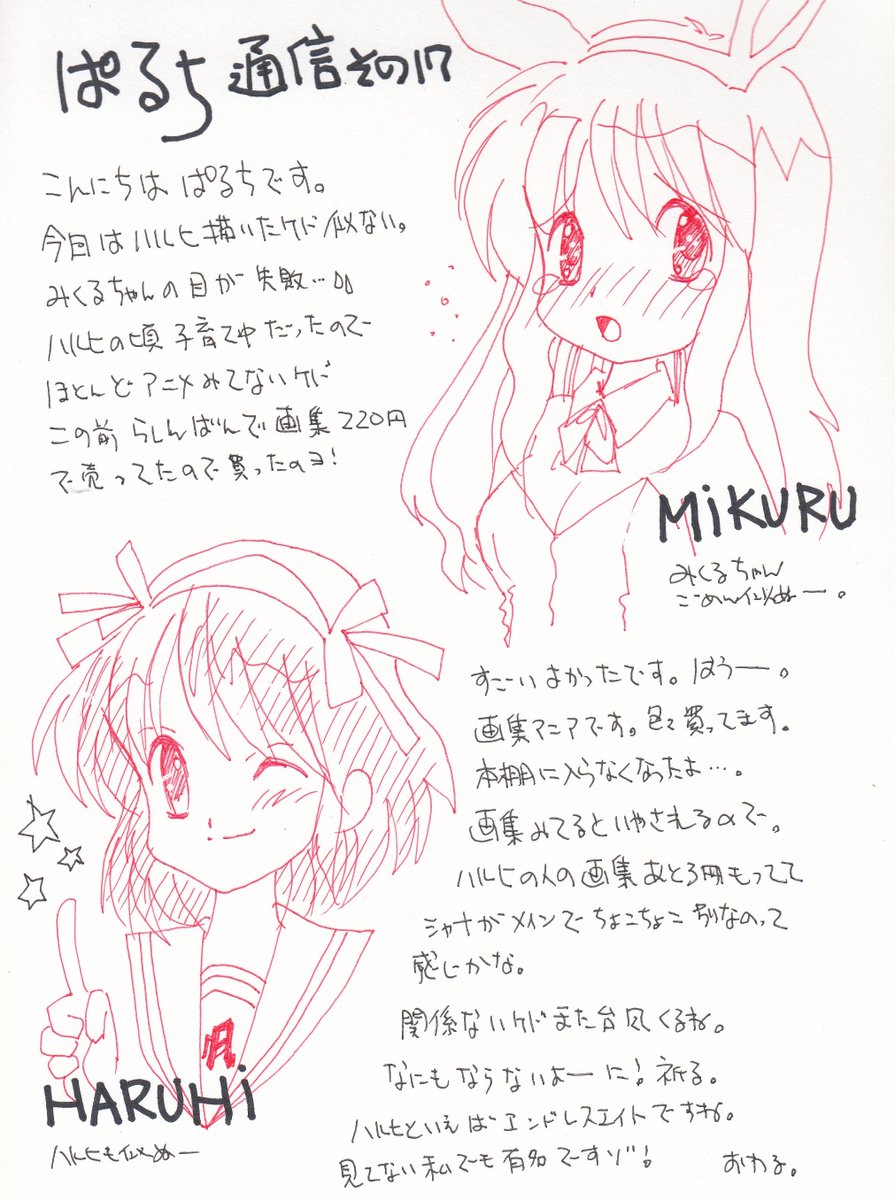 ぱるち通信その17
こんにちは ぱるちです。
今日はハルヒ描いたケド似ない。
みくるちゃんの目が失敗…
ハルヒの頃子育て中だったので
ほとんどアニメみてないけど
この前らしんばんで画集220円
で売ってたので買ったのヨ!
MiKURU
みくるちゃん
ごめん似ぬー。
HARUHi
ハルヒも似ぬー
すごいよかったです。はうー。
画集マニアです。色々買ってます。
本棚に入らなくなったよ…。
画集みてるといやされるので。
ハルヒの人の画集あと3冊もってて
シャナがメインでちょこちょこ別なのって
感じかな。
関係ないケドまた台風くるね。
なにもならないよーに!祈る。
ハルヒといえばエンドレスエイトですね。
見てない私でも有名ですゾ!
おわる。